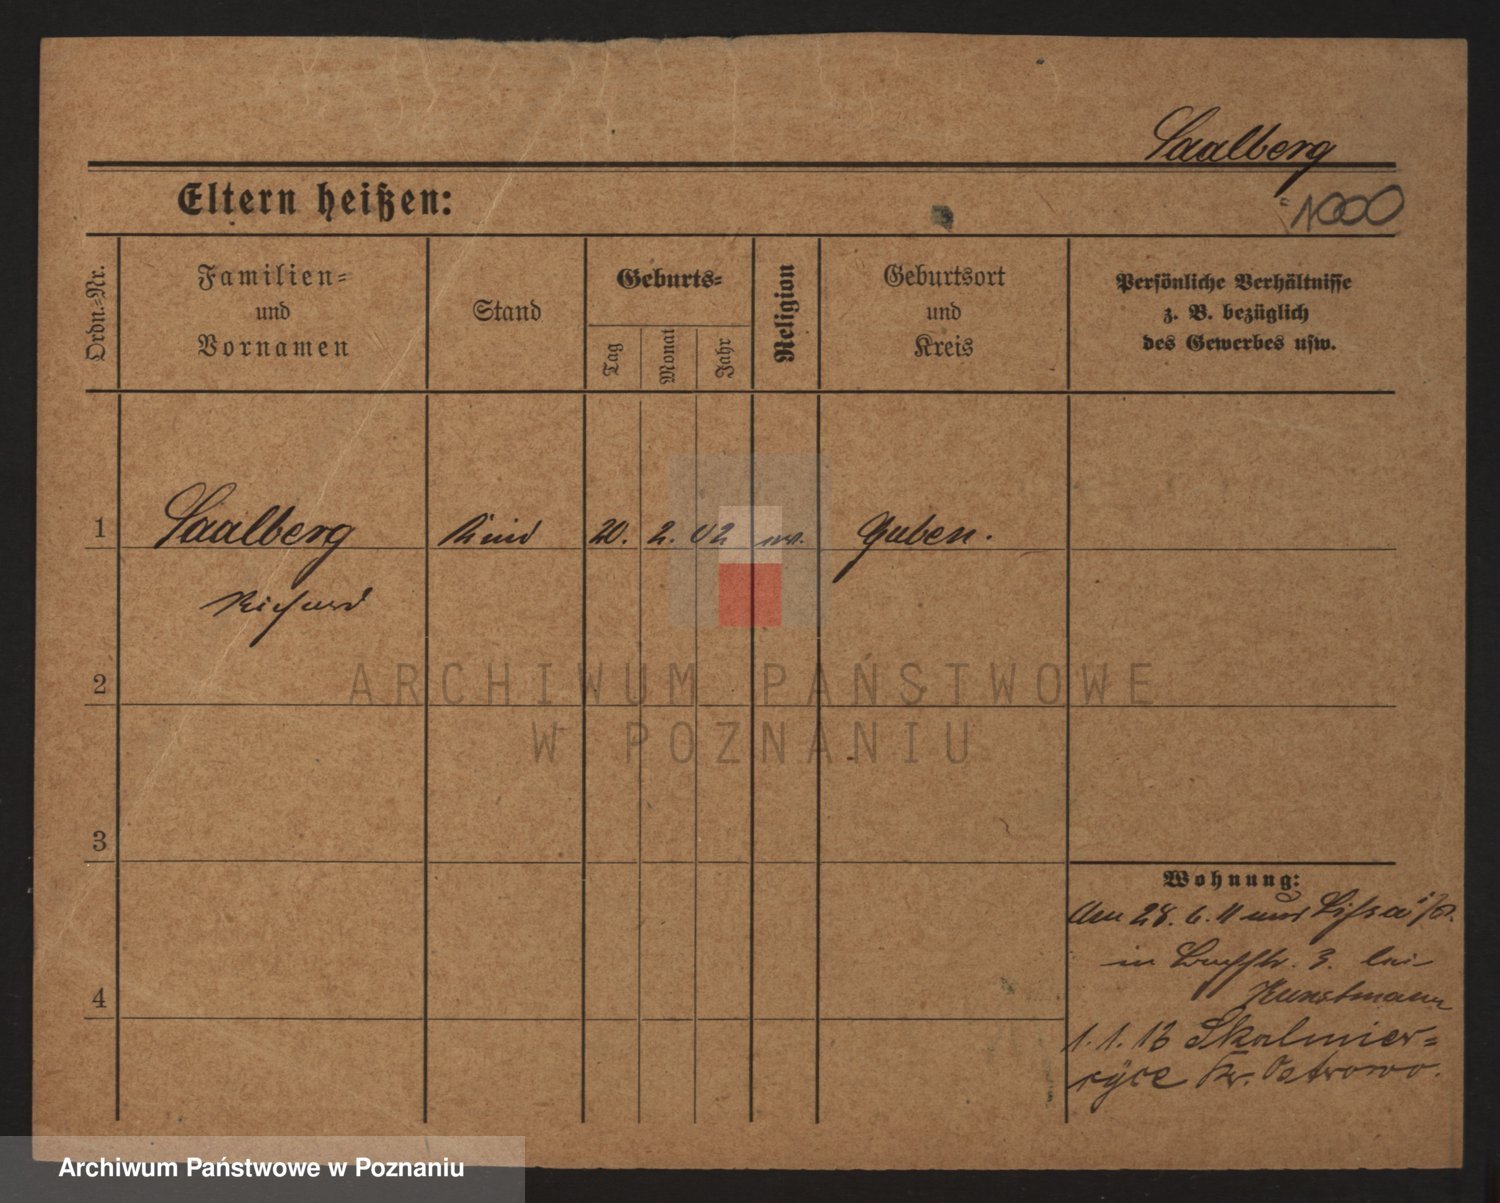 Saalberg
1000
Eltern heißen:
Ordn.-Nr.
Familien-
und
Vornamen
Stand
Geburts-
Tag
Monat
Jahr
Religion
Geburtsort
und
Kreis
Persönliche Verhältnisse
z. B. bezüglich
des Gewerbes usw.
1 Saalberg Kind 20. 2. 02 ev. Guben.
Richard
2
3
4
Wohnung:
28. 6. 11 Lissa i/P.
in 3. bei
Kunstmann
1. 1. 13 Skalmier-
zyce Kr. Ostrowo.
ARCHIWUM PAŃSTWOWE
W POZNANIU
Archiwum Państwowe w Poznaniu